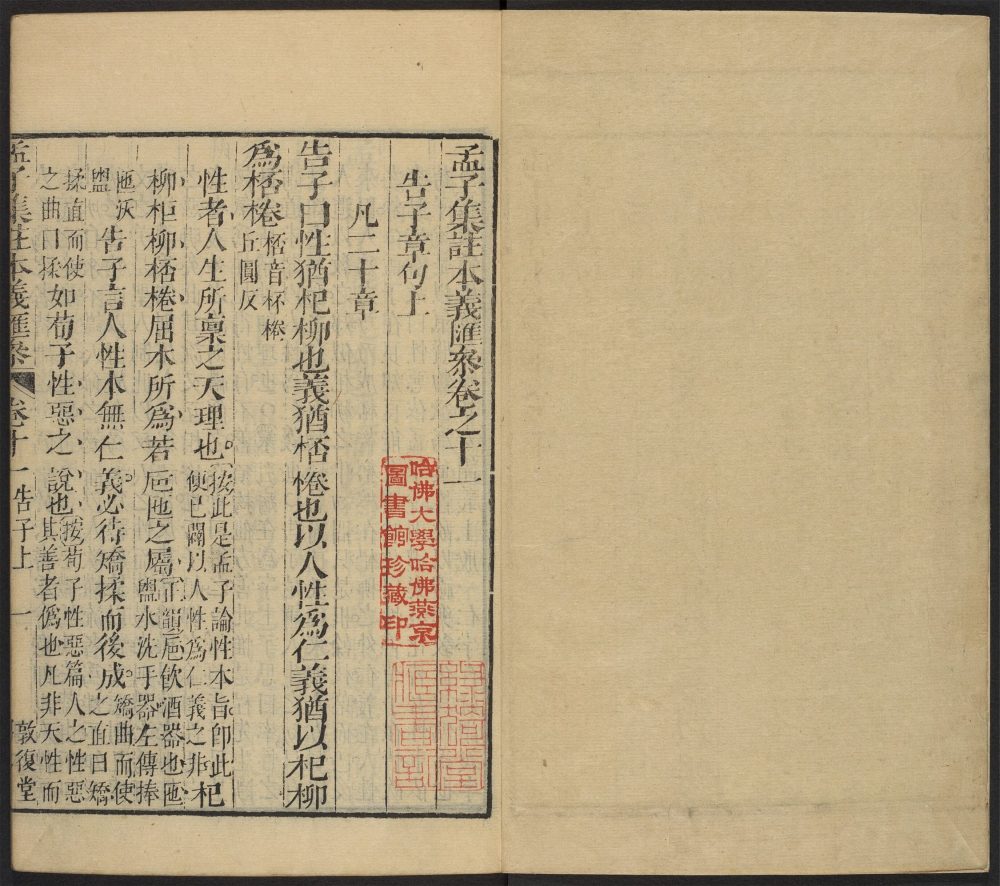 孟子集註本義匯叅卷之十一
告子章句上
凡二十章
告子曰性猶杞柳也義猶桮棬也以人性爲仁義猶以杞柳
爲桮棬桮音杯棬
丘圓反
性者人生所禀之天理也按此是孟子論性本旨卽此
便已闢以人性爲仁義之非杞
柳柜柳桮棬屈木所爲若巵匜之屬正韻巵飮酒器也匜
盥水洗手器左傳捧
匜沃
盥告子言人性本無仁義必待矯揉而後成矯曲而使
之直曰矯
揉直而使
之曲曰揉如荀子性惡之說也按荀子性惡篇人之性惡
其善者僞也凡非天性而
孟子集註本義匯叅 卷十一 告子上 一 敦復堂
哈佛大學哈佛燕京
圖書館珍藏印